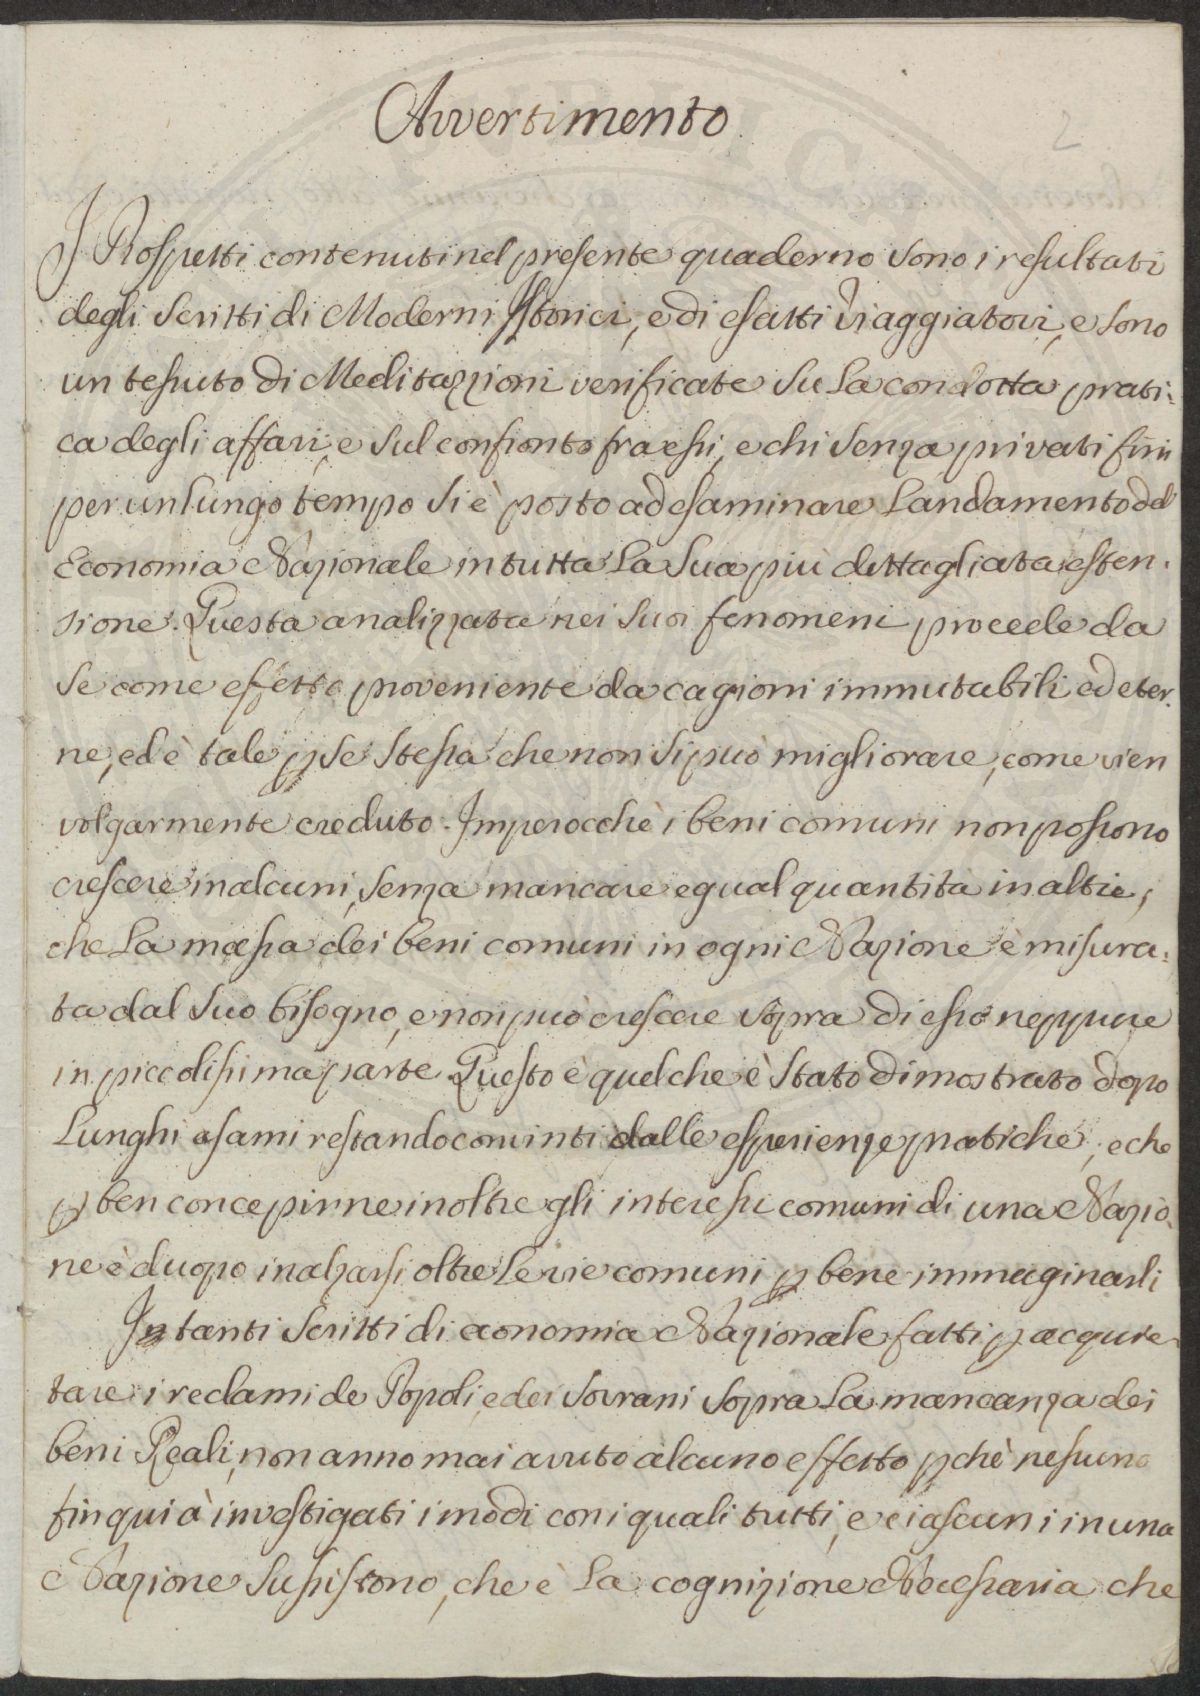 Avvertimento
2
I Prospetti contenuti nel presente quaderno sono i resultati
degli scritti di Moderni Istorici, e di esatti Viaggiatori, e sono
un tessuto di Meditazzioni verificate su la condotta prati:
ca degli affari, e sul confronto fra essi, e chi senza privati fini
per un lungo tempo si è posto ad esaminare l'andamento del
Economia Nazionale in tutta la sua più dettagliata esten.
sione. Questa analizzata nei suoi fenomeni procede da
se come effetto proveniente da cagioni immutabili ed eter.
ne, ed è tale p se stessa che non si può migliorare, come vien
volgarmente creduto. Imperocchè i beni comuni non possono
crescere in alcuni, senza mancare egual quantità in altri;
che la massa dei beni comuni in ogni Nazione è misura:
ta dal suo bisogno, e non può crescere sopra di esso neppure
in piccolissima parte. Questo è quel che è stato dimostrato dopo
lunghi esami restando convinti dalle esperienze pratiche, e che
p ben concepirne inoltre gli interessi comuni di una Nazio.
ne è duopo inalzarsi oltre le vie comuni p bene immaginarli
In tanti scritti di economia Nazionale fatti p acquie
tare i reclami de Popoli, e dei Sovrani sopra la mancanza dei
beni Reali, non anno mai avuto alcuno effetto pchè nessuno
fin qui à investigati i modi con i quali tutti, e ciascuni in una
Nazione sussistono, che è la cognizione Necessaria che